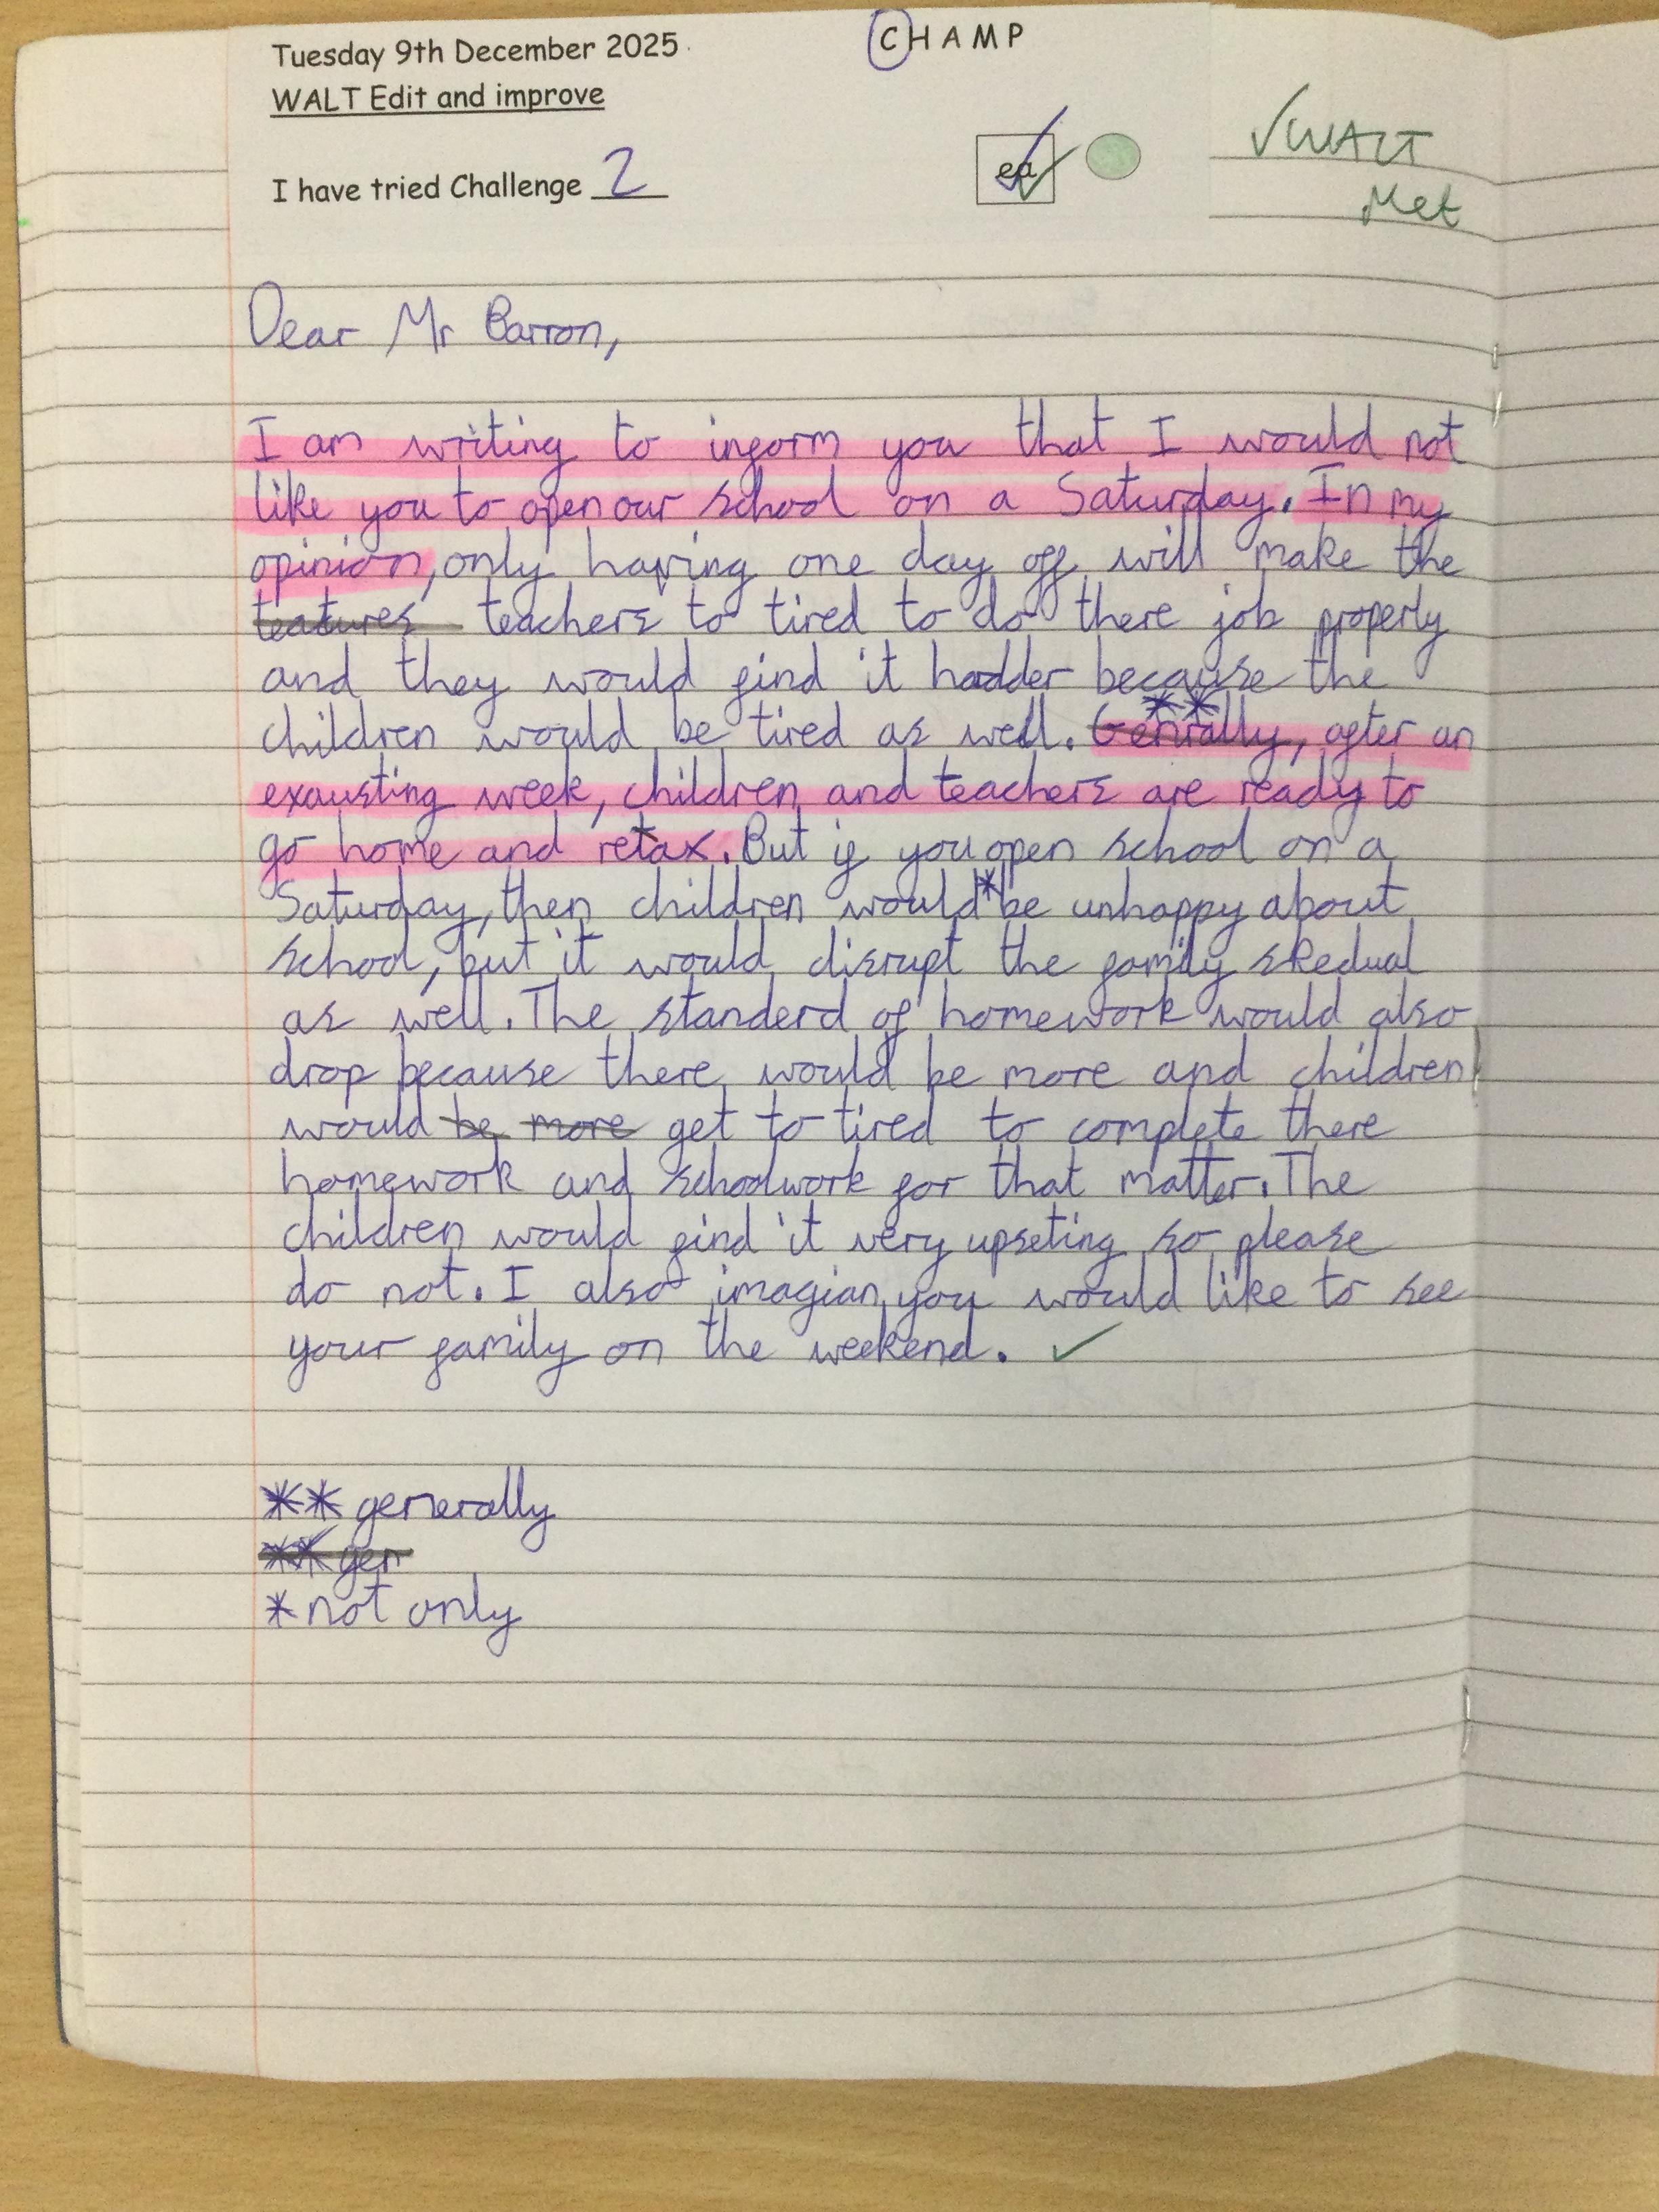 Tuesday 9th December 2025
CHAMP
WALT Edit and improve
I have tried Challenge 2
ea
√WALT
Met
Dear Mr Barron,
I am writing to inform you that I would not
like you to open our school on a Saturday. In my
opinion, only having one day off will make the
teatures teachers to tired to do there job properly
and they would find it hadder because the
**
children would be tired as well. Genrally, after an
exausting week, children and teachers are ready to
go home and relax. But if you open school on a
Saturday, then children would * be unhappy about
school, but it would disrupt the family skedual
as well. The standerd of homework would also
drop because there would be more and children
would be more get to tired to complete there
homework and schoolwork for that matter. The
children would find it very upseting so please
do not. I also imagian you would like to see
your family on the weekend. ✓
** generally
** gen
* not only